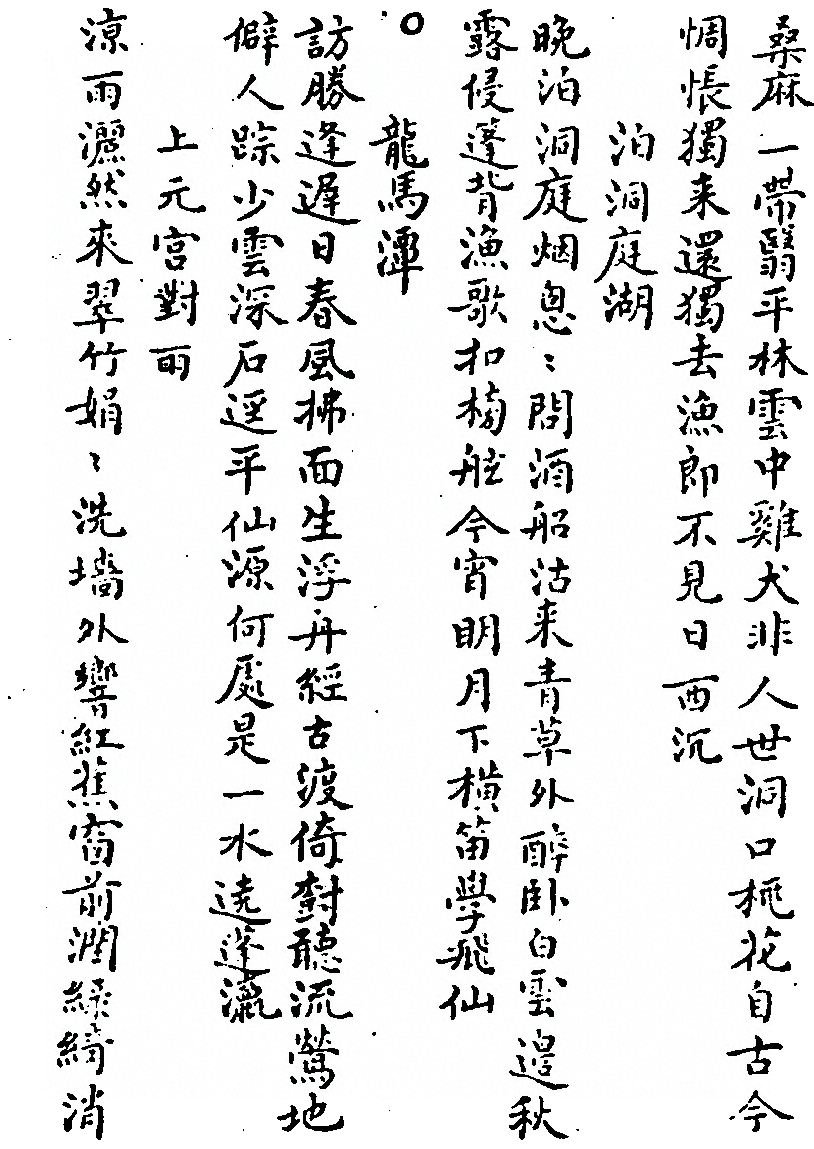 桑麻一帶翳平林雲中雞犬非人世洞口桃花自古今
惆悵獨来還獨去漁郎不見日西沉
泊洞庭湖
晚泊洞庭烟思〻問酒船沽来青草外醉卧白雲邉秋
露侵篷背漁歌扣槅舷今宵明月下横笛學飛仙
龍馬潭
訪勝逢遲日春風拂面生浮舟經古渡倚樹聽流鶯地
僻人踪少雲深石逕平仙源何處是一水遶蓬瀛
上元宮對雨
涼雨灑然來翠竹娟〻洗墻外響紅蕉窗前潤綠綺消